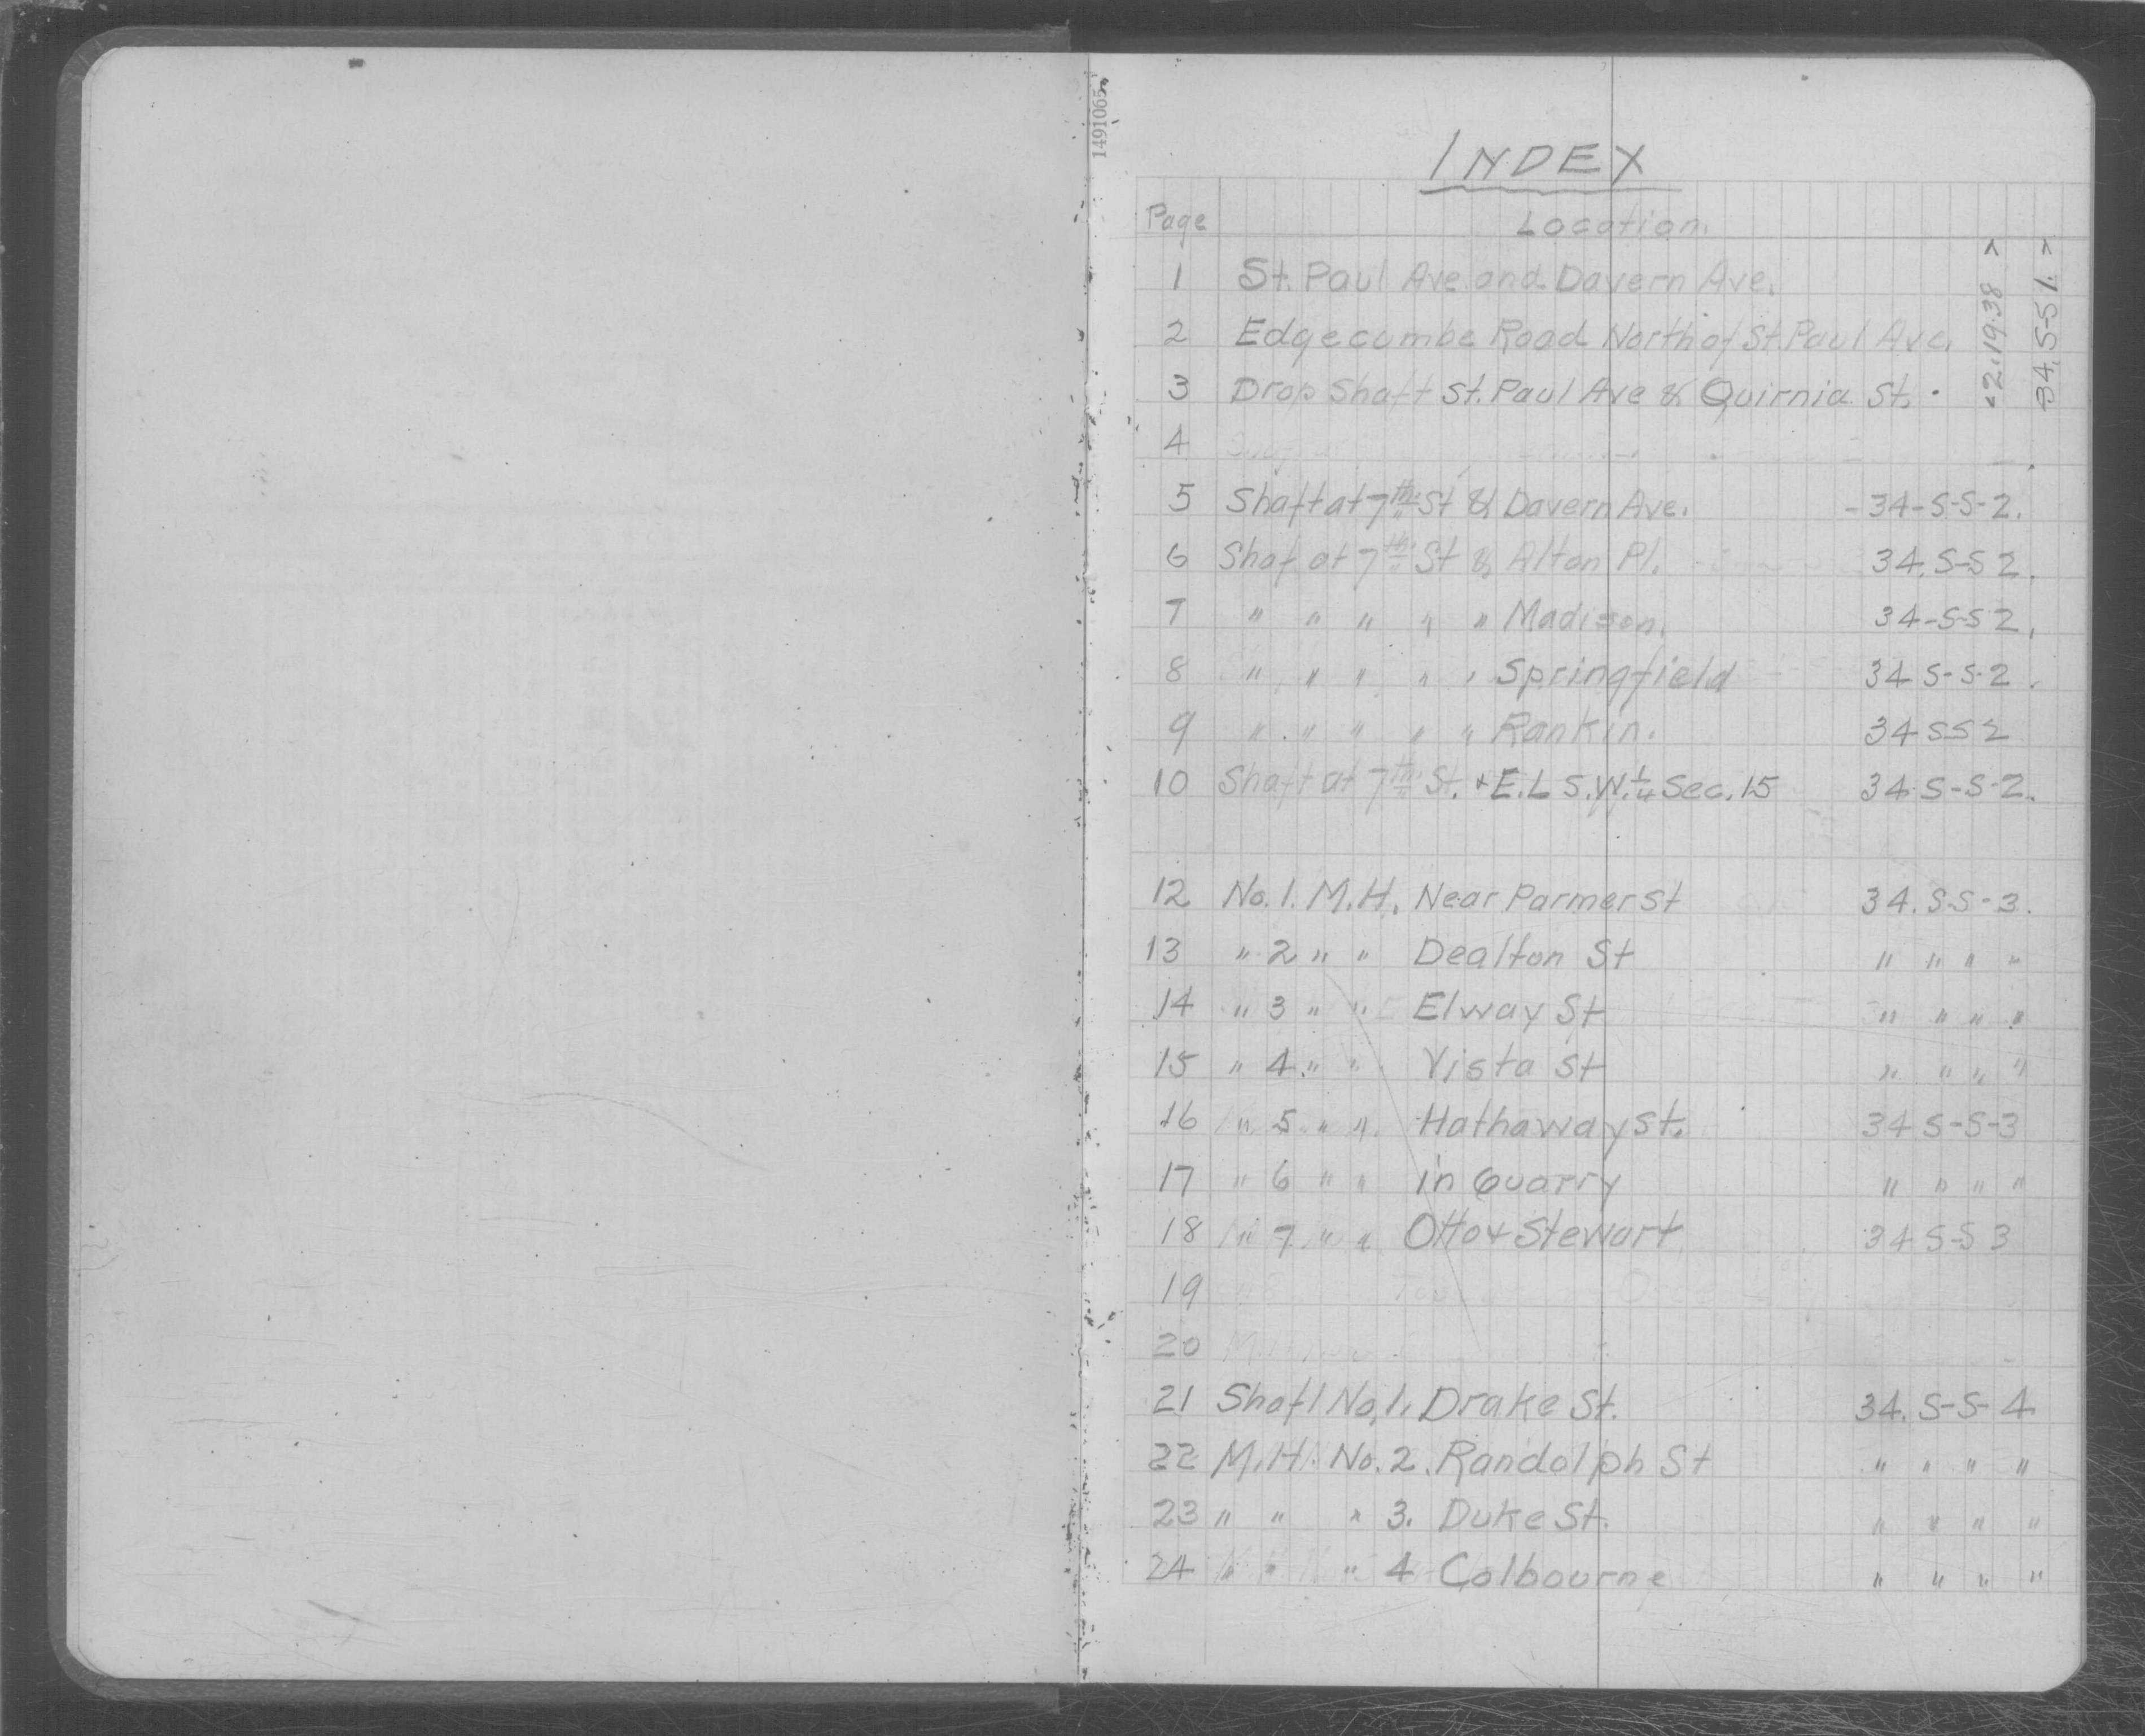 1491065
INDEX
Page Location.
1 St. Paul Ave. and Davern Ave.
2 Edgecumbe Road North of St. Paul Ave. 2.19.38 >
3 Drop Shaft St. Paul Ave & Quirnia St. 34.S-S 1. >
4
5 Shaft at 7th St & Davern Ave. - 34-S-S-2.
6 Shaf at 7th St & Alton Pl. 34.S-S 2.
7 " " " " " Madison. 34-S-S 2.
8 " " " " " Springfield 34 S-S-2.
9 " " " " " Rankin. 34 S S 2
10 Shaft at 7th St. + E.L S.W. 1/4 Sec. 15 34 S-S-2.
12 No. 1. M.H. Near Parmer St 34. S-S-3.
13 " 2 " " Dealton St " " " "
14 " 3 " " Elway St " " " "
15 " 4. " " Vista St " " " "
16 " 5 " " Hathaway St. 34 S-S-3
17 " 6 " " in Quarry " " " "
18 " 7 " " Otto & Stewart 34 S-S 3
19
20
21 Shaft No. 1. Drake St. 34. S-S-4
22 M.H. No. 2. Randolph St " " " "
23 " " " 3. Duke St. " " " "
24 " " " 4 Colbourne " " " "